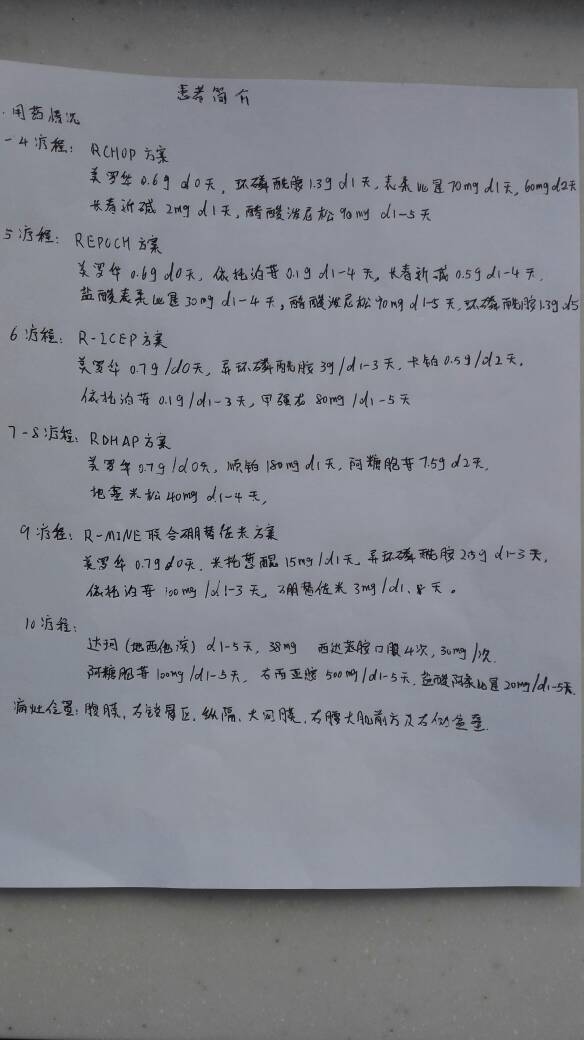 患者简介
.用药情况
-4疗程: RCHOP方案
美罗华0.6g d0天, 环磷酰胺1.3g d1天, 表柔比星70mg d1天, 60mg d2天
长春新碱 2mg d1天, 醋酸泼尼松90mg d1-5天
5疗程: REPOCH方案
美罗华0.6g d0天, 依托泊苷0.1g d1-4天, 长春新碱0.5g d1-4天,
盐酸表柔比星30mg d1-4天, 醋酸泼尼松90mg d1-5天, 环磷酰胺1.3g d5
6疗程: R-ICEP方案
美罗华0.7g/d0天, 异环磷酰胺3g/d1-3天, 卡铂0.5g/d2天,
依托泊苷0.1g/d1-3天, 甲强龙80mg/d1-5天
7-8疗程: RDHAP方案
美罗华0.7g/d0天, 顺铂180mg d1天, 阿糖胞苷7.5g d2天,
地塞米松40mg d1-4天,
9疗程: R-MINE联合硼替佐米方案
美罗华0.7g d0天, 米托蒽醌15mg/d1天, 异环磷酰胺2.5g d1-3天,
依托泊苷100mg/d1-3天, 硼替佐米3mg/d1、8天。
10疗程:
达珂(地西他滨) d1-5天, 38mg 西达苯胺口服4次, 30mg/次
阿糖胞苷100mg/d1-5天, 右丙亚胺500mg/d1-5天, 盐酸阿柔比星20mg/d1-5天
病灶位置: 腹膜, 右锁骨区, 纵隔、大网膜, 右腰大肌前方及右侧